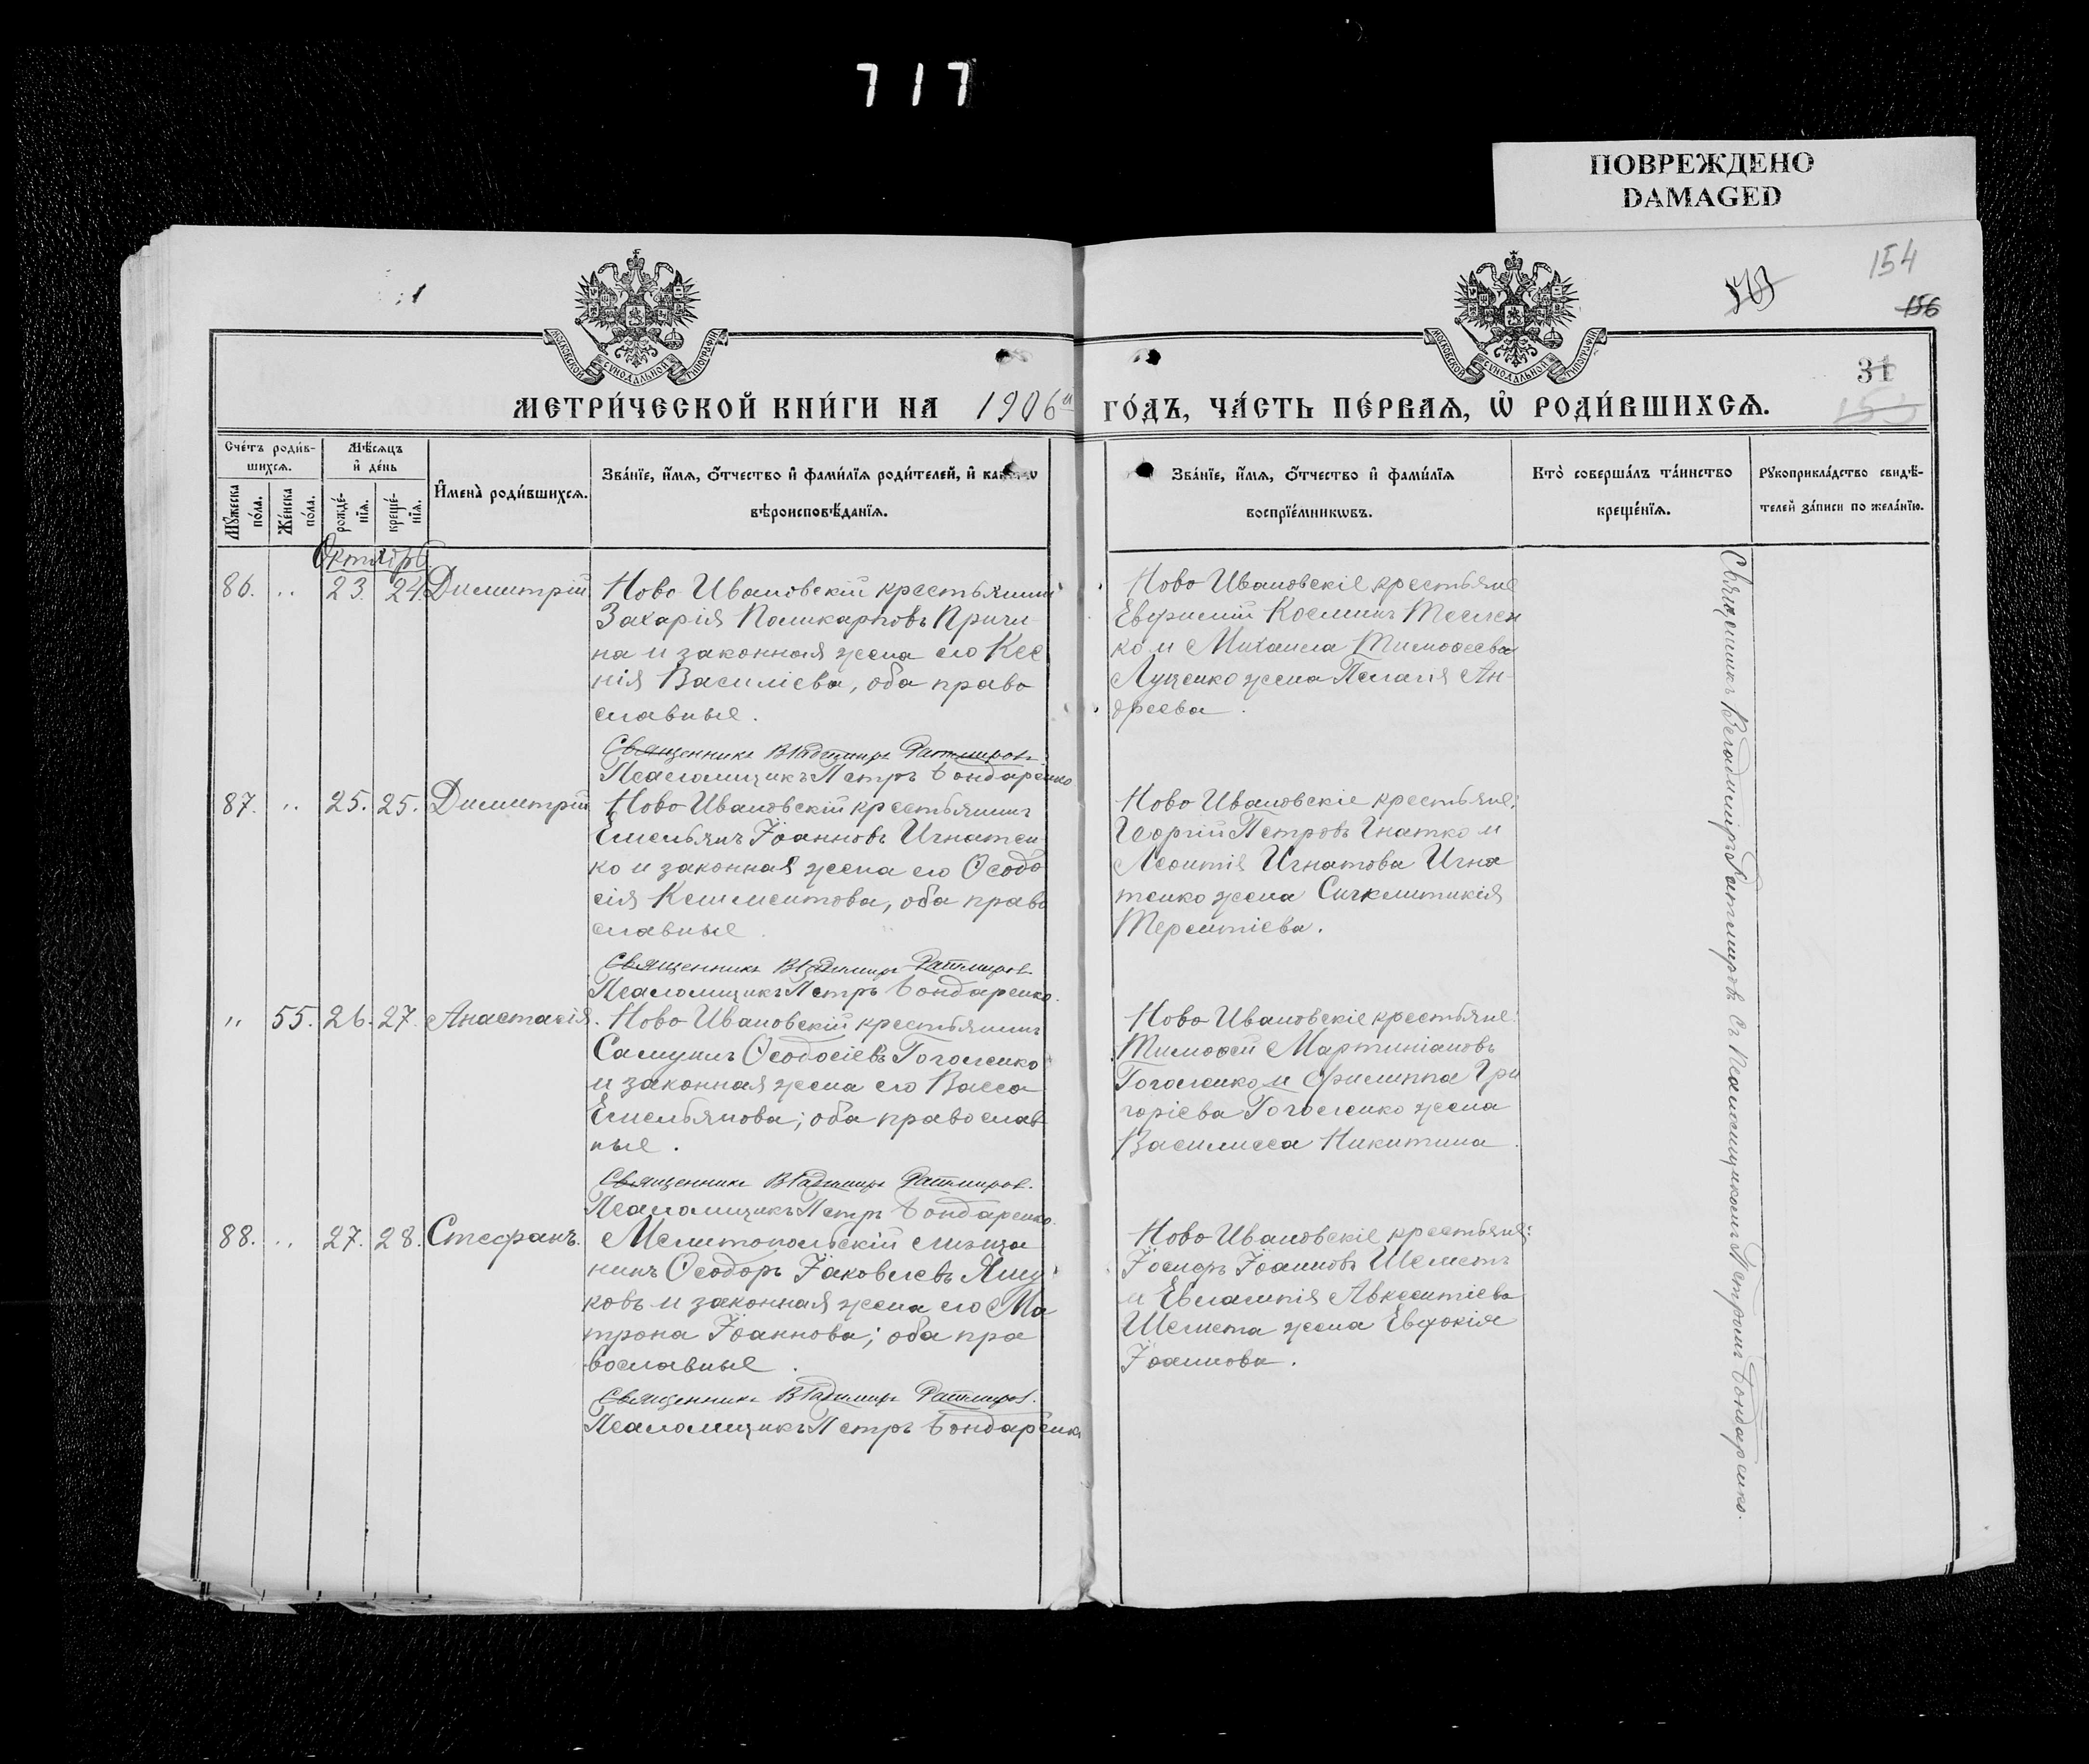 717
ПОВРЕЖДЕНО
DAMAGED
154
156
31
МОСКОВСКОЙ СѴНОДАЛЬНОЙ ТИПОГРАФІИ
МОСКОВСКОЙ СѴНОДАЛЬНОЙ ТИПОГРАФІИ
МЕТРИ́ЧЕСКОЙ КНИ́ГИ НА 1906й ГО́ДЪ, ЧА́СТЬ ПЕ́РВАЯ, Ѡ҆ РОДИ́ВШИХСЯ.
Сче́тъ роди́в-
шихся.
Мѣ́сяцъ
и҆ де́нь
Мꙋ́жеска
по́ла.
Же́нска
по́ла.
рожде́-
нїя.
креще́-
нїя.
И҆мена̀ роди́вшихся.
Зва́нїе, и҆́мя, ѻ҆́тчество и҆ фами́лїя роди́телей, и҆
вѣроисповѣ́данїя.
Зва́нїе, и҆́мя, ѻ҆́тчество и҆ фами́лїя
воспрїе́мникѡвъ.
Кто̀ соверша́лъ та́инство
креще́нїя.
Рꙋкоприкла́дство свидѣ́-
телей за́писи по жела́нїю.
Октябрь
86. ,, 23. 24. Димитрій
Ново Ивановскій крестьянинъ
Захарія Поликарповъ Причи-
на и законная жена его Ксе
нія Василіева, оба право
славные.
Священникъ Владимиръ Ратмировъ.
Псаломщикъ Петръ Бондаренко
Ново Ивановскіе крестьяне
Евфимій Косминъ Теслен
ко и Михаила Тимофеева
Луценко жена Пелагія Ан-
дреева.
87. ,, 25. 25. Димитрій
Ново Ивановскій крестьянинъ
Емельянъ Іоанновъ Игнатен
ко и законная жена его Ѳеодо
сія Климентова, оба право
славные.
Священникъ Владимиръ Ратмировъ.
Псаломщикъ Петръ Бондаренко.
Ново Ивановскіе крестьяне:
Георгій Петровъ Гнатко и
Леонтія Игнатова Игна
тенко жена Сигклитикія
Терентіева.
,, 55. 26. 27. Анастасія.
Ново Ивановскій крестьянинъ
Самуилъ Ѳеодосіевъ Гоголенко
и законная жена его Васса
Емельянова; оба православ
ные.
Священникъ Владимиръ Ратмировъ.
Псаломщикъ Петръ Бондаренко.
Ново Ивановскіе крестьяне:
Тимоѳей Мартиніановъ
Гоголенко и Филиппа Гри
горіева Гоголенко жена
Василисса Никитина.
88. ,, 27. 28. Стефанъ.
Мелитопольскій мѣща
нинъ Ѳеодоръ Іаковлевъ
ковъ и законная жена его Ма
трона Іоаннова; оба пра
вославные.
Священникъ Владимиръ Ратмировъ.
Псаломщикъ Петръ Бондаренко
Ново Ивановскіе крестьяне:
Іосифъ Іоанновъ Шеметъ
и Евлампія Авксентіева
Шемета жена Евдокія
Іоаннова.
Священникъ Владимиръ Ратмировъ съ Псаломщикомъ Петромъ Бондаренко.